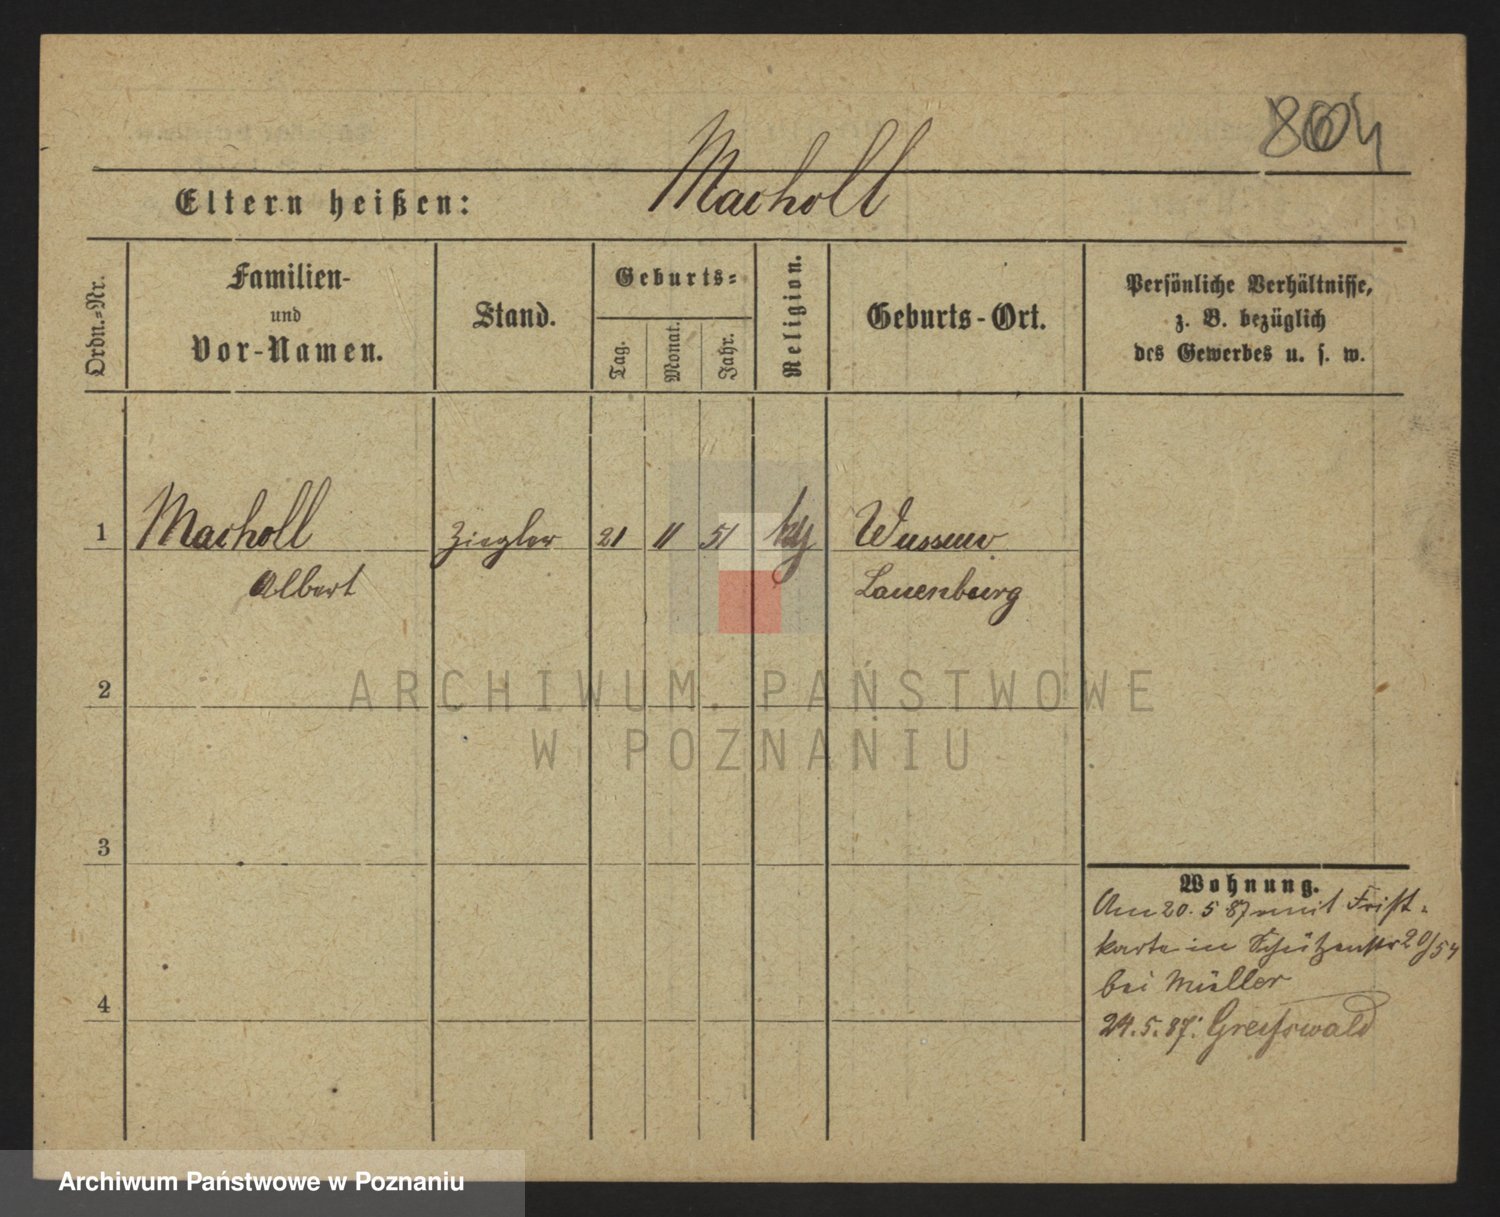 8604
Macholl
Eltern heißen:
Ordn.-Nr.
Familien-
und
Vor-Namen.
Stand.
Geburts-
Tag.
Monat.
Jahr.
Religion.
Geburts-Ort.
Persönliche Verhältnisse,
z. B. bezüglich
des Gewerbes u. s. w.
1 Macholl Ziegler 21 11 51 Wussow
Albert Lauenburg
2
ARCHIWUM PAŃSTWOWE
W POZNANIU
3
Wohnung.
Am 20. 5 87 mit Frist-
karte in Schützenstr 20/54
bei Müller
4
24. 5. 87: Greifswald
Archiwum Państwowe w Poznaniu